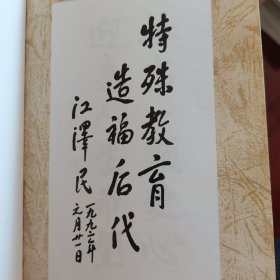 特殊教育
造福后代
江澤民
一九九二年
元月廿一日